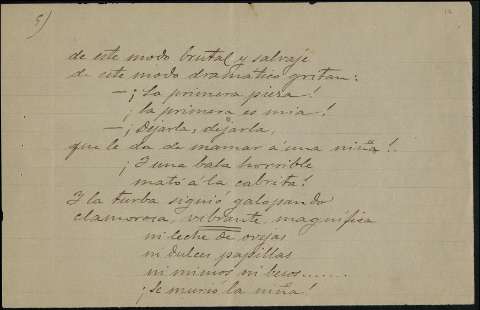 5)
12
de este modo brutal y salvaje
de este modo dramatico gritan:
— ¡La primera pieza!
¡la primera es mia!
— ¡Dejarla, dejarla,
que le da de mamar á una niña!
¡Y una bala horrible
mató á la cabrita!
Y la turba siguió galopando
clamorosa, vibrante, magnífica
ni leche de ovejas
ni dulces papillas
ni mimos ni besos.......
¡Se murió la niña!